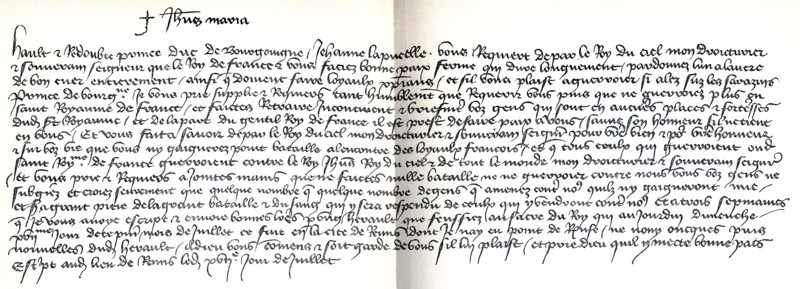 ✝ Jhũs maria
Hault et Redoubte prince duc de Bourgoingne / Jehanne lapucelle · vous Requiert depar le Roy du ciel mon droicturier
et souverain seigneur que le Roy de france et vous faciez bonne paix ferme qui dure longuement / pardonnez lun alautre
de bon cuer / entierement / ainsi que doivent faire loyaulx xp̃ians / et sil vous plaist aguerroier si alez sur les sarrazins
Prince de bourgne Je vous prie supplie et Requiers tant humblemt que Requerir vous puis que ne guerroiez plus ou
saint Royaume de france / et faictes Retraire Incontinent et briefmt voz gens qui sont en aucunes places et forteresses
dud st Royaume / et de la part du gentil Roy de france il est prest defaire paix a vous / sauve son honneur sil ne tient
en vous / et vous faiz a savoir depar le Roy du ciel mon droicturier et souverain seigneur pour vre bien et pour vre honneur
et sur voz vie que vous ny gaignerez point bataille alencontre des loyaulx francois / et que tous ceulx qui guerroient oud
saint Rme de france guerroient contre le Roy Jhũs Roy du ciel et de tout le monde mon droicturier et souverain seigneur
/ et vous prie et Requiers a Jointes mains que ne faictes nulle bataille ne ne guerroiez contre nous vous voz gens ne
subgiez et croiez seurement que quelque nombre q̃ quelque nombre degens q̃ amenez contre nous quilz ny gaigneront mie /
et sera grant pitie delagrant bataille et du sang qui y sera respendu de ceulx qui y vendront contre nous et a trois sepmaines
q̃ Je vous avoye escript et envoie bonnes lectres par ung herault que feussiez au sacre du Roy qui aujourdui dimenche
xviime Jour de ce pnt mois de Juillet ce fait en la cite de Rains dont Je nay eu point de Response / ne nony oncques puis
nouvelles dud herault / Adieu vous comens et soit garde de vous sil lui plaist / et prie dieu quil y mecte bonne paix
Escrpt aud lieu de Rains led xviie Jour de Juillet